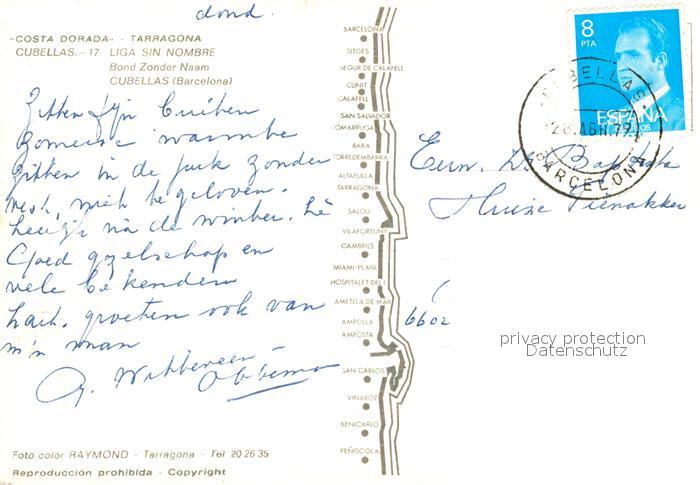 dond.
"COSTA DORADA" - TARRAGONA
CUBELLAS.-17 LIGA SIN NOMBRE
Bond Zonder Naam
CUBELLAS (Barcelona)
Zitten fijn buiten
zomerse warmte
zitten in de jurk zonder
vest, niet te geloven.
Heerlijk na de winter. Hè
Goed gezelschap en
vele bekenden
Hart. groeten ook van
m'n man
BARCELONA
SITGES
SEGUR DE CALAFELL
CUNIT
CALAFELL
SAN SALVADOR
COMARRUGA
BARA
TORREDEMBARRA
ALTAFULLA
TARRAGONA
SALOU
VILAFORTUNY
CAMBRILS
MIAMI-PLAYA
HOSPITALET DEL I.
AMETLLA DE MAR
AMPOLLA
AMPOSTA
SAN CARLOS
VINAROZ
BENICARLO
PEÑISCOLA
8
PTA
ESPAÑA
CUBELLAS
28 ABR. 79
BARCELONA
Eerw. Dr.
Huize
6602
privacy protection
Datenschutz
Foto color RAYMOND - Tarragona - Tel 20 26 35
Reproducción prohibida - Copyright